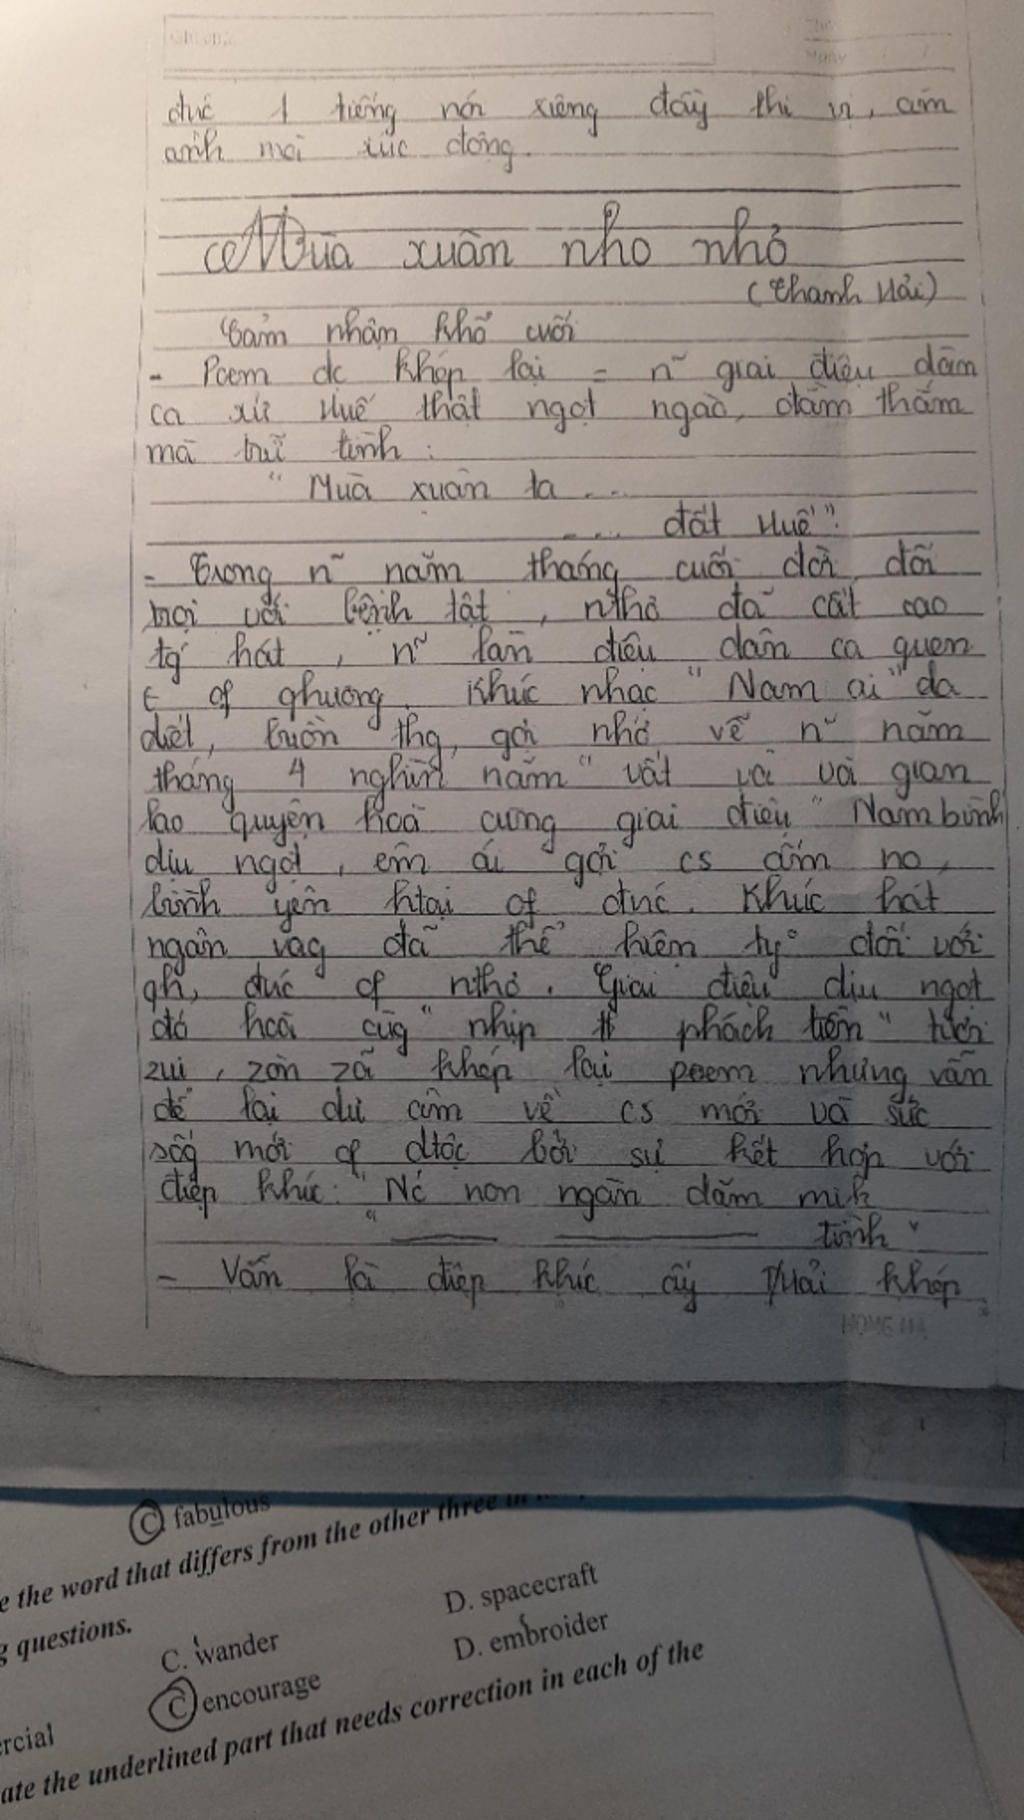 đức 1 tiếng nói riêng đầy thi vị, ám
ảnh mà xúc động.
Mùa xuân nho nhỏ
(Thanh Hải)
Cảm nhận khổ cuối
- Poem đc khép lại = n~ giai điệu dân
ca xứ Huế thật ngọt ngào, đằm thắm
mà trữ tình :
" Mùa xuân ta ...
.... đất Huế".
- Trong n~ năm tháng cuối đời đối
mặt với bệnh tật, nthơ đã cất cao
tg hát, n~ làn điệu dân ca quen
t of qhương. Khúc nhạc "Nam ai" da
diết, buồn thg, gợi nhớ về n~ năm
tháng 4 nghìn năm" vất vả và gian
lao quyện hoà cùng giai điệu "Nam bình
dịu ngọt, êm ái gợi cs ấm no,
bình yên htại of đnc. Khúc hát
ngân vag đã thể hiện ty đối với
qh, đnc of nthơ. Giai điệu dịu ngọt
đó hoà cùg "nhịp phách tiền" tươi
zui, zòn zã khép lại poem nhưng vẫn
để lại dư âm về cs mới và sức
sốg mới of dtộc bởi sự kết hợp với
điệp khúc: "Nc non ngàn dặm mih
" tình "
- Vẫn là điệp khúc ấy THải khép
HOME
C. fabulous
e the word that differs from the other three in
g questions.
C. wander D. spacecraft
C encourage D. embroider
ercial
ate the underlined part that needs correction in each of the